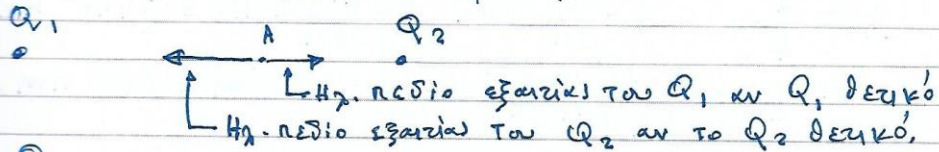 Q₁ A Q₂
Ηλ. πεδίο εξαιτίας του Q₁ αν Q₁ θετικό
Ηλ. πεδίο εξαιτίας του Q₂ αν το Q₂ θετικό.